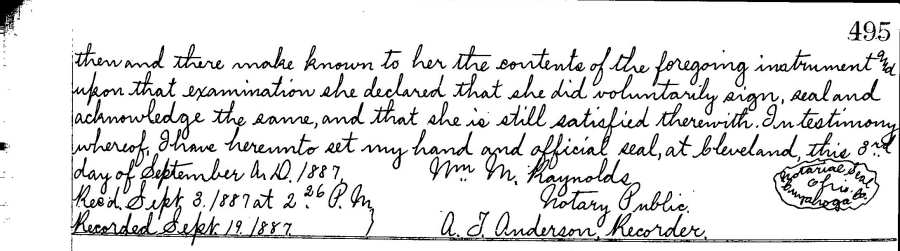 495
then and there make known to her the contents of the foregoing instrument and
upon that examination she declared that she did voluntarily sign, seal and
acknowledge the same, and that she is still satisfied therewith. In testimony
whereof, I have hereunto set my hand and official seal, at Cleveland, this 3rd
day of September A.D. 1887. Wm M. Raynolds
Notarial Seal
Cuyahoga Co.
Rec'd. Sept. 3. 1887 at 2 26 P.M. Notary Public.
Recorded Sept 19. 1887. A. T. Anderson, Recorder.